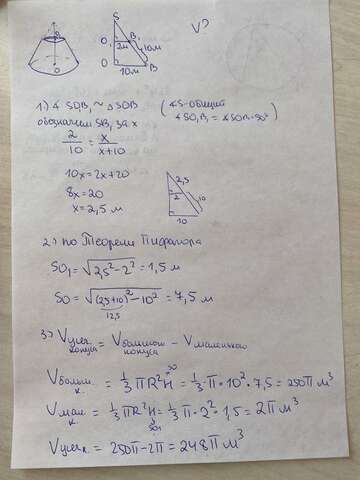 S
V?
O₁ 2м B₁ 10м
O 10м B
O
1) ∡ SO₁B₁ ~ △SOB (∡S-общий
∡SO₁B₁ = ∡SOB=90°)
обозначим SB₁ за x
2/10 = x/x+10
10x = 2x+20
8x = 20
x = 2,5 м
2,5
2 10
10
2) по Теореме Пифагора
SO₁ = √2,5²-2² = 1,5 м
SO = √(2,5+10)²-10² = 7,5 м
12,5
3) Vусеч. конуса = Vбольшого конуса - Vмаленького
Vбольш. к. = 1/3 πR²H = 1/3·π·10²·7,5 = 250π м³
SO
Vмал к = 1/3 πR²H = 1/3 π·2²·1,5 = 2π м³
SO₁
Vусеч к. = 250π-2π = 248π м³